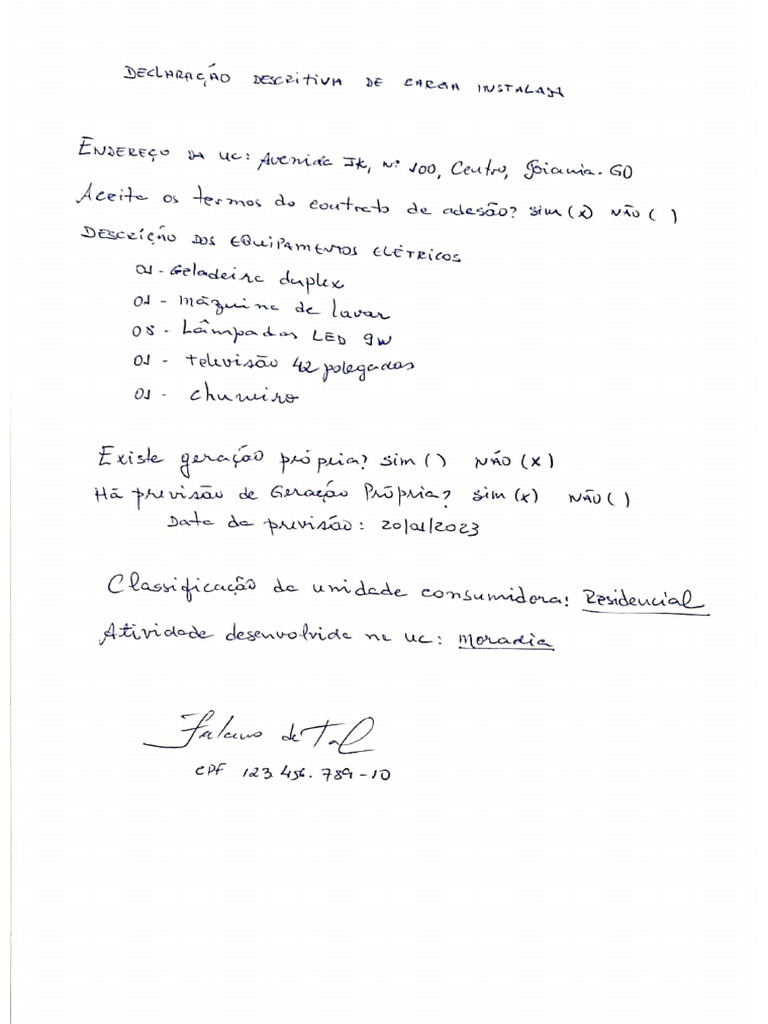 DECLARAÇÃO DESCRITIVA DE CARGA INSTALADA
ENDEREÇO DA UC: Avenida JK, Nº 100, Centro, Goiania-GO
Aceita os termos do contrato de adesão? SIM (X) NÃO ( )
DESCRIÇÃO DOS EQUIPAMENTOS ELÉTRICOS
01 - Geladeira duplex
01 - Máquina de lavar
08 - Lâmpadas LED 9W
01 - Televisão 42 polegadas
01 - Chuveiro
Existe geração própria? SIM ( ) NÃO (X)
Há previsão de Geração Própria? SIM (X) NÃO ( )
Data da previsão: 20/01/2023
Classificação da unidade consumidora: Residencial
Atividade desenvolvida na UC: Moradia
Fulano de Tal
CPF 123.456.789-10